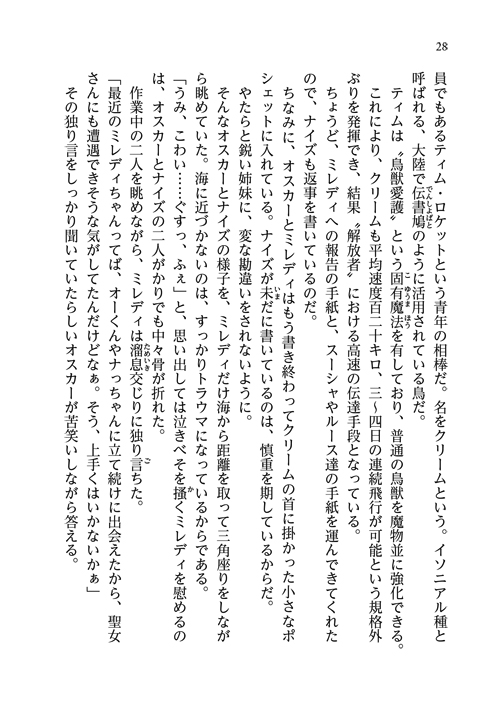 28
員でもあるティム・ロケットという青年の相棒だ。名をクリームという。イソニアル種と
呼ばれる、大陸で伝書鳩のように活用されている鳥だ。
でんしよばと
ティムは〝鳥獣愛護〟という固有魔法を有しており、普通の鳥獣を魔物並に強化できる。
こゆうまほう
これにより、クリームも平均速度百二十キロ、三〜四日の連続飛行が可能という規格外
ぶりを発揮でき、結果〝解放者〟における高速の伝達手段となっている。
ちょうど、ミレディへの報告の手紙と、スーシャやルース達の手紙を運んできてくれた
ので、ナイズも返事を書いているのだ。
ちなみに、オスカーとミレディはもう書き終わってクリームの首に掛かった小さなポ
シェットに入れている。ナイズが未だに書いているのは、慎重を期しているからだ。
いま
やたらと鋭い姉妹に、変な勘違いをされないように。
そんなオスカーとナイズの様子を、ミレディだけ海から距離を取って三角座りをしなが
ら眺めていた。海に近づかないのは、すっかりトラウマになっているからである。
「うみ、こわい……ぐすっ、ふぇ」と、思い出しては泣きべそを掻くミレディを慰めるの
か
は、オスカーとナイズの二人がかりでも中々骨が折れた。
作業中の二人を眺めながら、ミレディは溜息交じりに独り言ちた。
ためいき
ご
「最近のミレディちゃんってば、オーくんやナっちゃんに立て続けに出会えたから、聖女
さんにも遭遇できそうな気がしてたんだけどなぁ。そう、上手くはいかないかぁ」
その独り言をしっかり聞いていたらしいオスカーが苦笑いしながら答える。